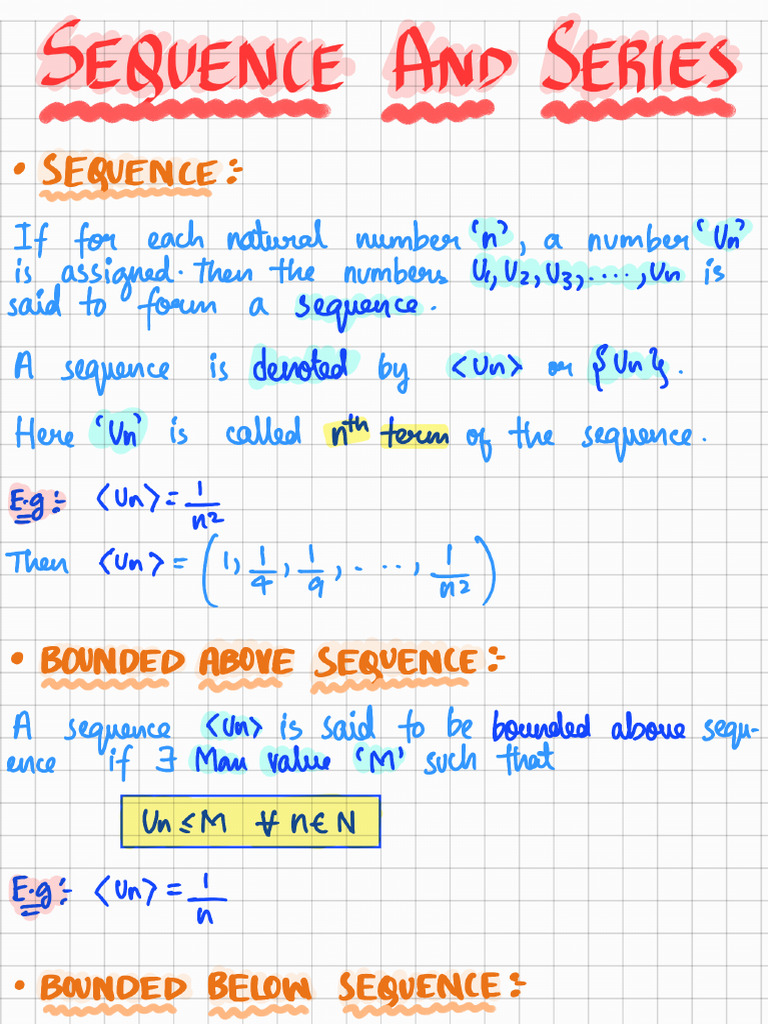 SEQUENCE AND SERIES
• SEQUENCE:-
If for each natural number 'n', a number 'Un'
is assigned. Then the numbers U1, U2, U3, ...., Un is
said to form a sequence.
A sequence is denoted by <Un> or {Un}.
Here 'Un' is called nth term of the sequence.
E.g:- <Un> = 1/n²
Then <Un> = (1, 1/4, 1/9, ...., 1/n²)
• BOUNDED ABOVE SEQUENCE:-
A sequence <Un> is said to be bounded above sequ-
ence if ∃ Max value 'M' such that
Un ≤ M ∀ n ∈ N
E.g:- <Un> = 1/n
• BOUNDED BELOW SEQUENCE:-